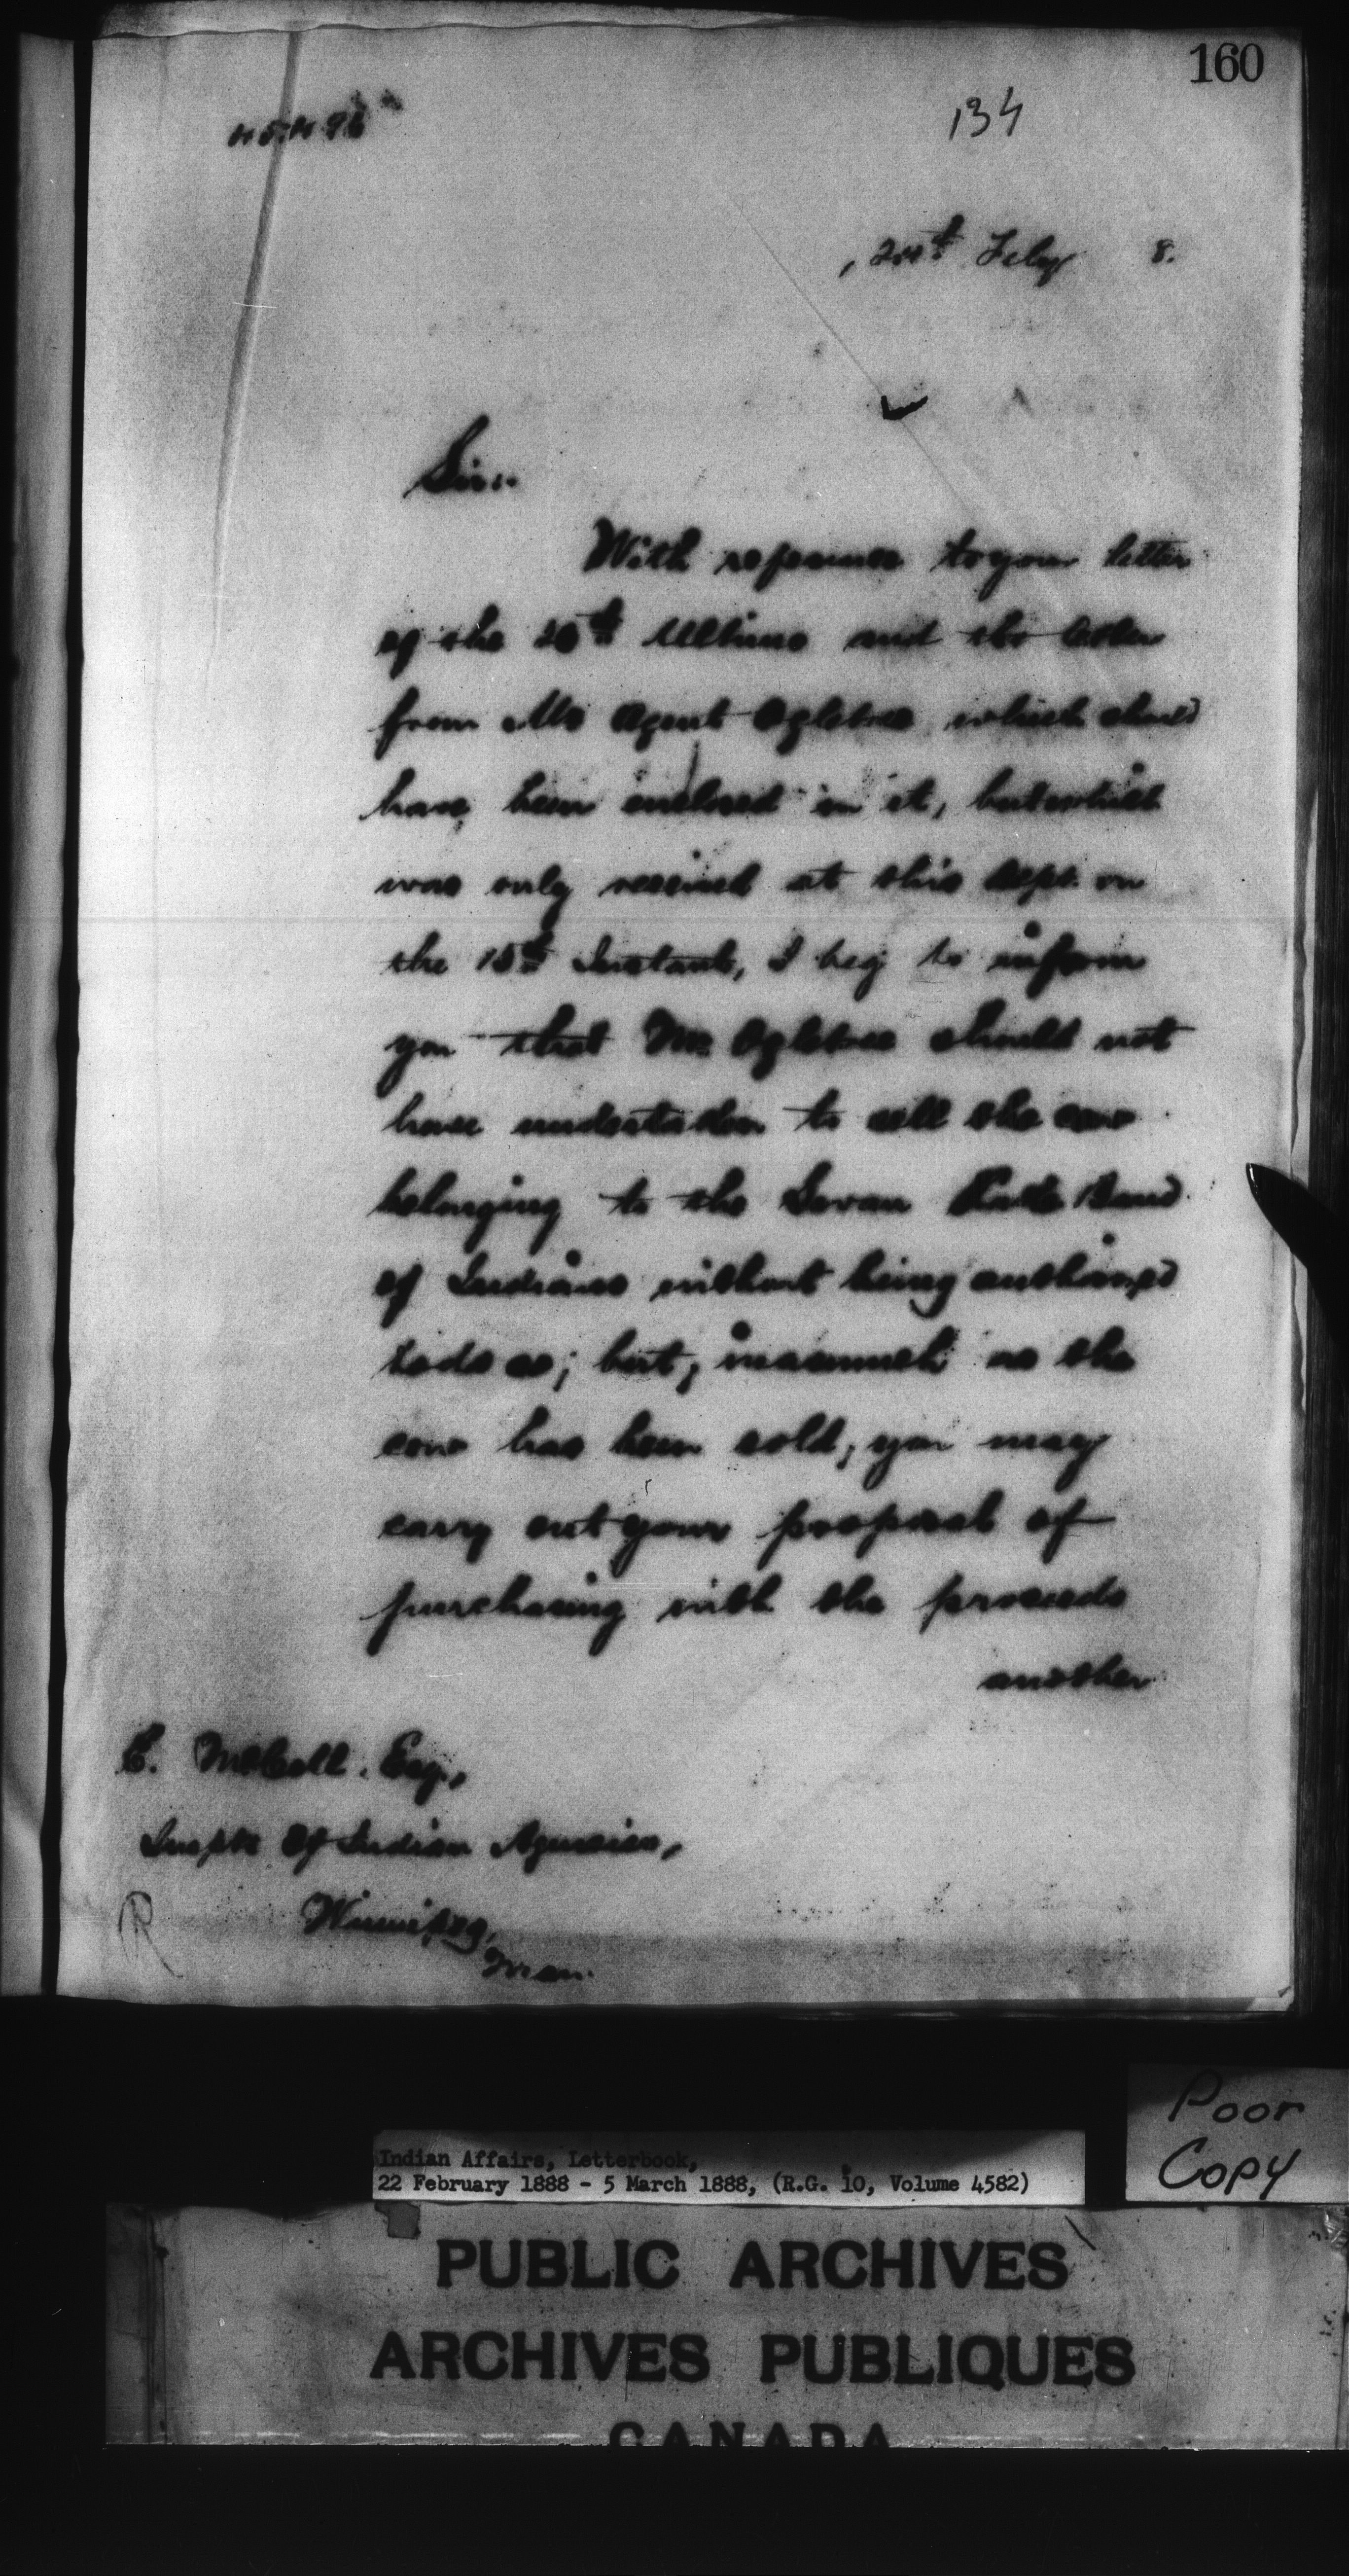 160
134
24th Feby 8.
Sir:
With reference to your letter
of the 20th Ultimo and the letter
from Mr Agent Ogletree which should
have been enclosed in it, but which
was only received at this Dept. on
the 15th Instant, I beg to inform
you that Mr Ogletree should not
have undertaken to sell the cow
belonging to the Swan Lake Band
of Indians without being authorized
to do so; but, inasmuch as the
cow has been sold, you may
carry out your proposal of
purchasing with the proceeds
another
E. McColl. Esq.,
Inspr of Indian Agencies,
Winnipeg,
Man.
R
Poor
Copy
Indian Affairs, Letterbook,
22 February 1888 - 5 March 1888, (R.G. 10, Volume 4582)
PUBLIC ARCHIVES
ARCHIVES PUBLIQUES
CANADA